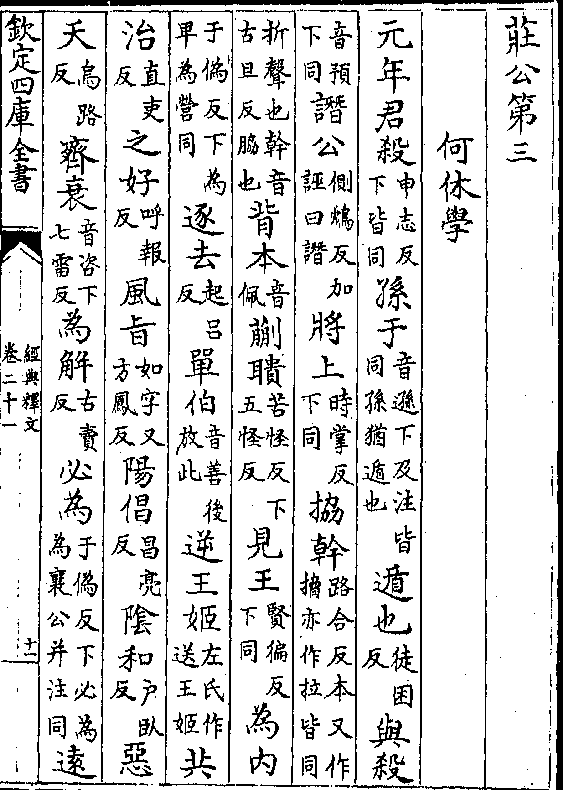 莊公第三
何休學
元年君殺申志反下皆同孫于音遜下及注皆同孫猶遁也遁也徒困反與殺
音預下同譖公側鴆反加誣曰譖將上時掌反下同搚幹路合反本又作摺亦作拉皆同
折聲也幹音古旦反脇也背本音佩蒯聵苦怪反下五怪反見王賢徧反下同為内
于偽反下為卑為營同逐去起吕反單伯音善後放此逆王姬左氏作送王姬共
治直吏反之好呼報反風旨如字又方鳳反陽倡昌亮反陰和户臥反惡
天烏路反齊衰音咨下七雷反為解古賣反必為于偽反下必為為襄公并注同遠
欽定四庫全書
經典釋文
卷二十一
十一